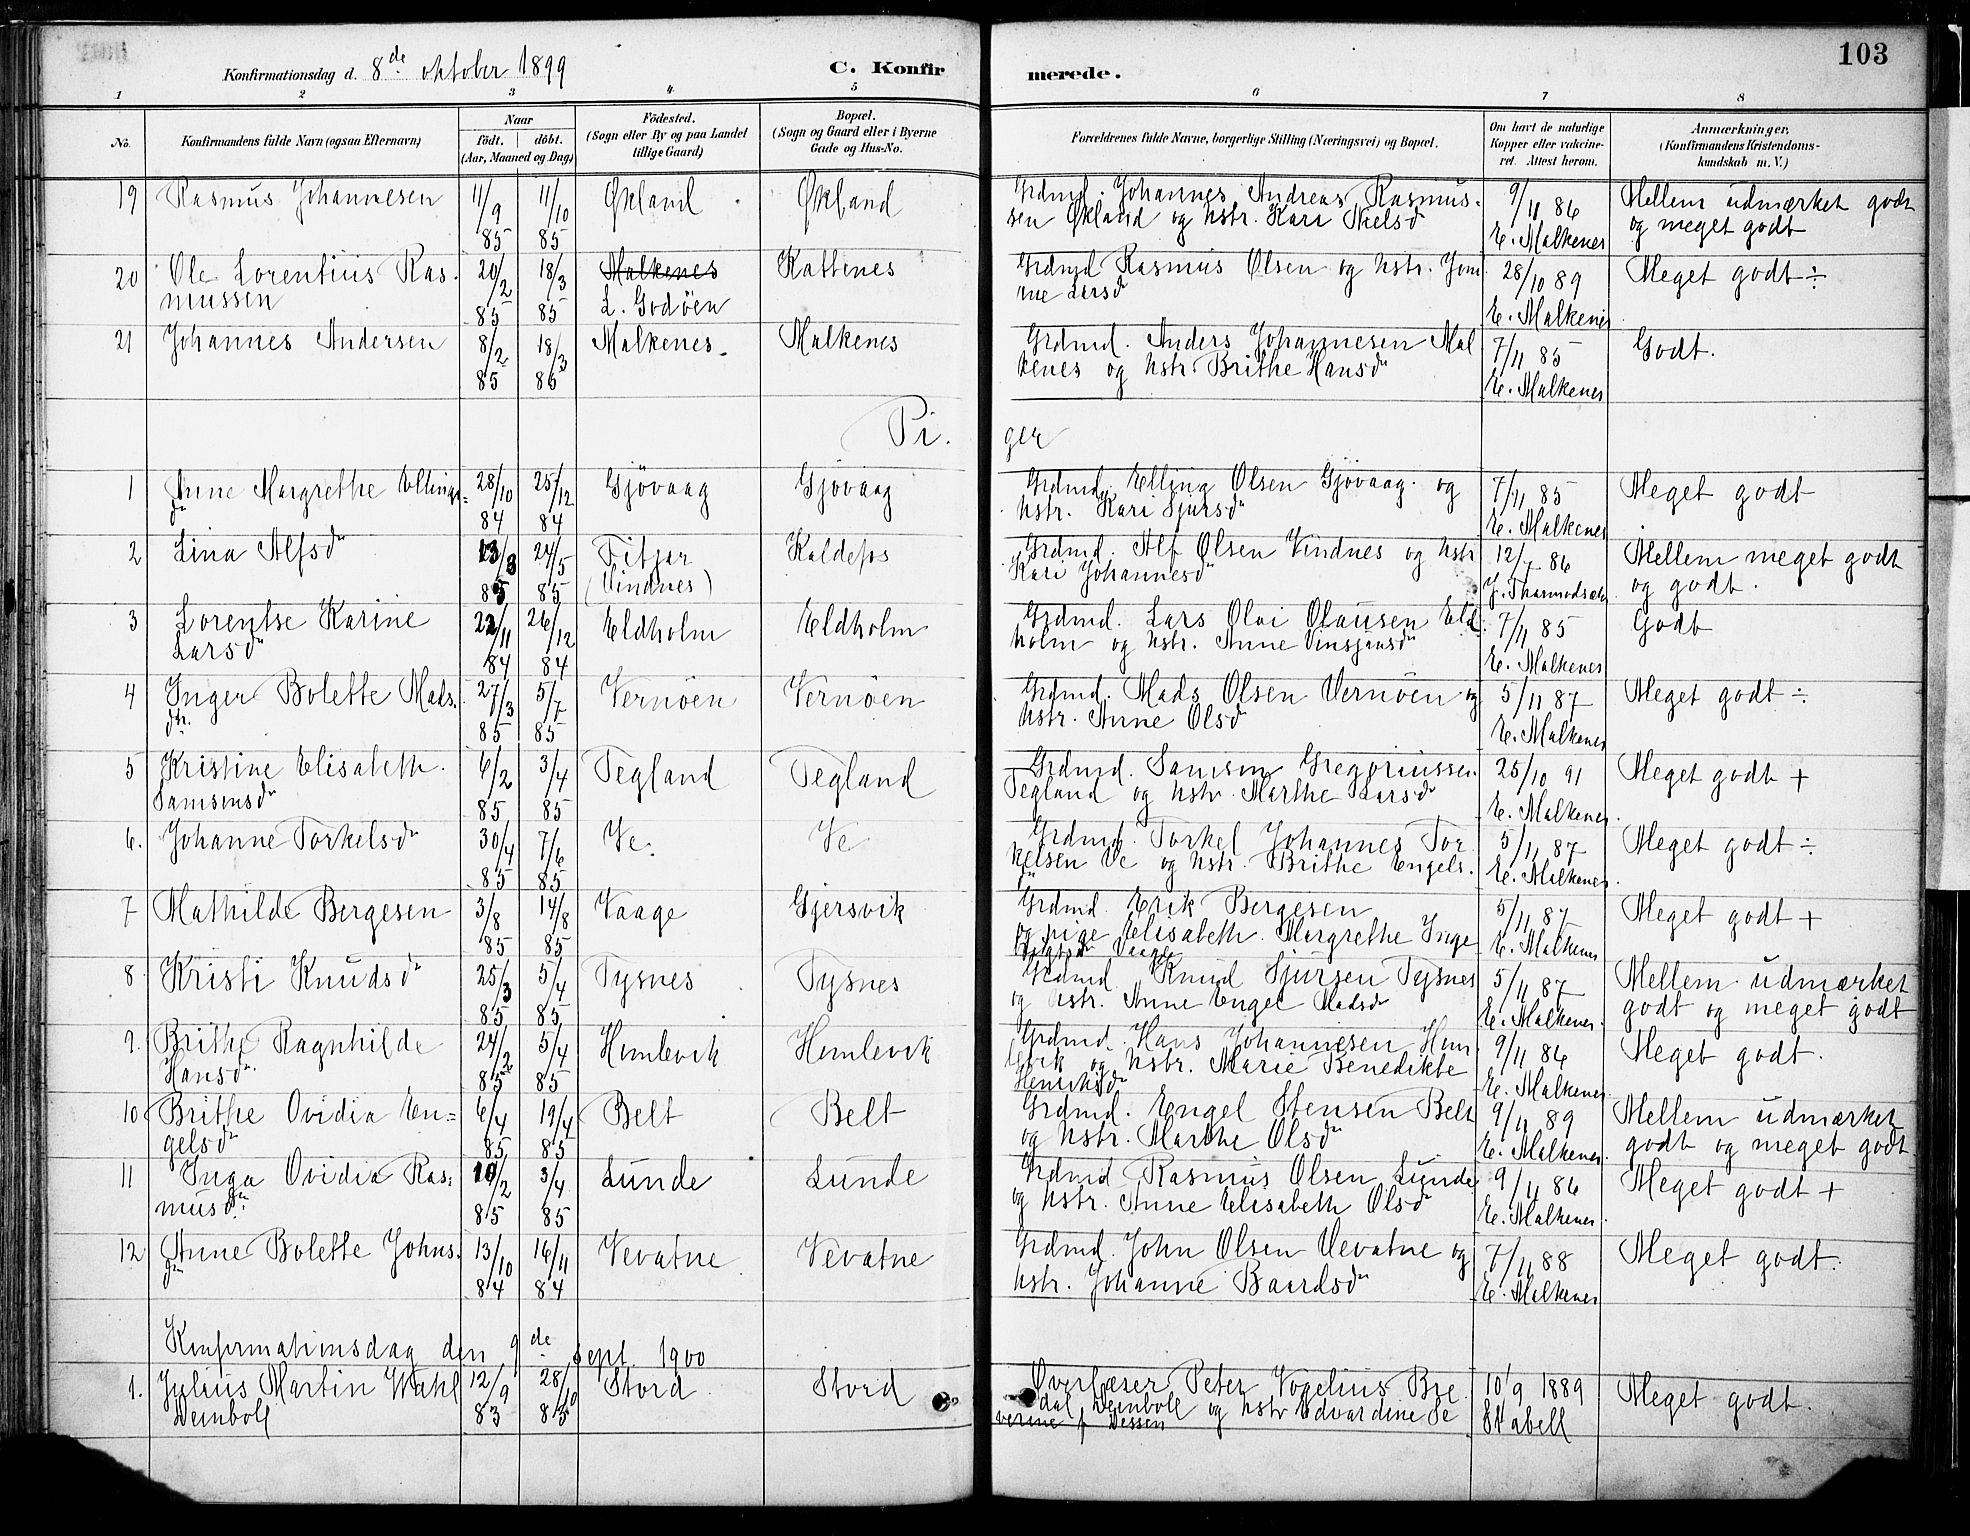 103
Konfirmationsdag d. 8de oktober 1899 C. Konfirmerede.
1 2 3 4 5 6 7 8
No. Konfirmandens fulde Navn (ogsaa Efternavn) Naar født. døbt. (Aar, Maaned og Dag) Fødested. (Sogn eller By og paa Landet tillige Gaard) Bopæl. (Sogn og Gaard eller i Byerne Gade og Hus-No. Forældrenes fulde Navne, borgerlige Stilling (Næringsvei) og Bopæl. Om havt de naturlige Kopper eller vakcineret. Attest herom. Anmærkninger, (Konfirmandens Kristendomskundskab m. V.)
19 Rasmus Johannesen 11/9 85 11/10 85 Økland Økland Grdmd. Johannes Andreas Rasmus-
sen Økland og hstr. Kari Nielsd 9/11 86 E. Malkenes Mellem udmærket godt
og meget godt
20 Ole Lorentius Ras-
mussen 20/2 85 18/3 85 Malkenes L. Godöen Kattenes Grdmd Rasmus Olsen og hstr. Jon
ne Larsd 28/10 89 E. Malkenes Meget godt ÷
21 Johannes Andersen 8/2 85 18/3 86 Malkenes. Malkenes Grdmd. Anders Johannesen Mal
kenes og hstr. Brithe Hansdr 7/11 85 E. Malkenes Godt.
Pi. ger
1 Anne Margrethe Ellings-
dr 28/10 84 25/12 84 Gjövaag Gjövaag Grdmd. Elling Olsen Gjövaag og
hstr. Kari Sjursdr 7/11 85 E. Malkenes Meget godt
2 Lina Alfsdr 13/3 85 24/5 85 Fitjar
(Vindnes) Kaldefos Grdmd. Alf Olsen Vindnes og hstr
Kari Johannesdr 12/7 86 Mellem meget godt
og godt.
3 Lorentse Karine
Larsdr 22/11 84 26/12 84 Eldholm Eldholm Grdmd. Lars Olai Olausen Eld
holm og hstr. Anne Vinsjansdr 7/11 85 E. Malkenes Godt
4 Inger Bolette Mads.
dtr. 27/3 85 5/7 85 Vernöen Vernöen Grdmd. Mads Olsen Vernöen og
hstr. Anne Olsd 5/11 87 E. Malkenes Meget godt ÷
5 Kristine Elisabeth
Samsonsdr 6/2 85 3/4 85 Tegland Tegland Grdmd. Samson Gregoriussen
Tegland og hstr. Marthe Larsdr 25/10 91 E. Malkenes. Meget godt +
6. Johanne Torkelsdr 30/4 85 7/6 85 Ve. Ve Grdmd. Torkel Johannes Tor
kelsen Ve og hstr. Brithe Engels.
dr 5/11 87 E. Malkenes. Meget godt ÷
7 Mathilde Bergesen 3/8 85 14/8 85 Vaage Gjersvik Grdmd. Erik Bergesen
og pige Elisabeth Margrethe Inge
Vaage 5/11 87 E. Malkenes Meget godt +
8. Kristi Knudsdr 25/3 85 5/4 85 Tysnes Tysnes Grdmd. Knud Sjursen Tysnes
og hstr. Anne Engel Madsdr 5/11 87 E. Malkenes. Mellem udmærket
godt og meget godt
9. Brithe Ragnhilde
Hansdr. 24/2 85 5/4 85 Humlevik Humlevik Grdmd. Hans Johannesen Hum
levik og hstr. Marie Benedikte
Henriksdr 9/11 86 E. Malkenes. Meget godt.
10 Brithe Ovidia En-
gelsdr 6/4 85 19/4 85 Belt Belt Grdmd. Engel Stensen Belt
og hstr. Marthe Olsdr 9/11 89 E. Malkenes. Mellem udmærket
godt og meget godt
11 Inga Ovidia Ras-
musdr. 10/2 85 3/4 85 Lunde Lunde Grdmd Rasmus Olsen Lunde
og hstr. Anne Elisabeth Olsdr 9/11 86 E. Malkenes. Meget godt +
12 Anne Bolette Johns.
dr 13/10 84 16/11 84 Vevatne Vevatne Grdmd. John Olsen Vevatne og
hstr. Johanne Baardsdr 7/11 88 E. Malkenes Meget godt.
Konfirmationsdag den 9de sept. 1900
1. Julius Martin Wahl
Deinboll 12/9 83 28/10 83 Stord Stord Overlærer Peter Vogelius Bre
dal Deinboll og hstr Edvardine Se
verine f. Dessen 10/9 1889 Stabell Meget godt.